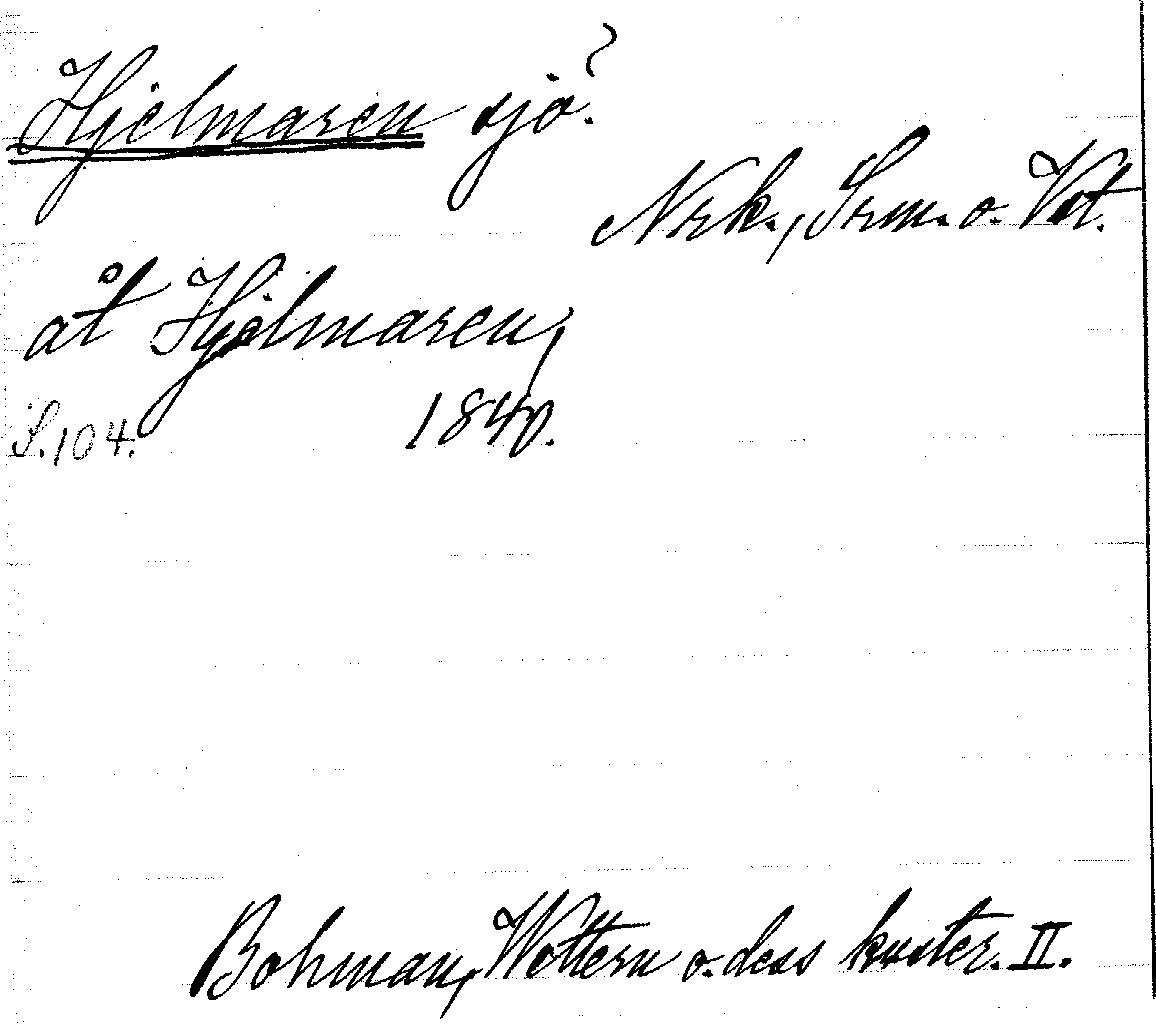 Hjelmaren sjö?
Nrk., Srm. o. Vst.
åt Hjelmaren,
S. 104. 1840.
Bohman, Wettern o. dess kuster. II.